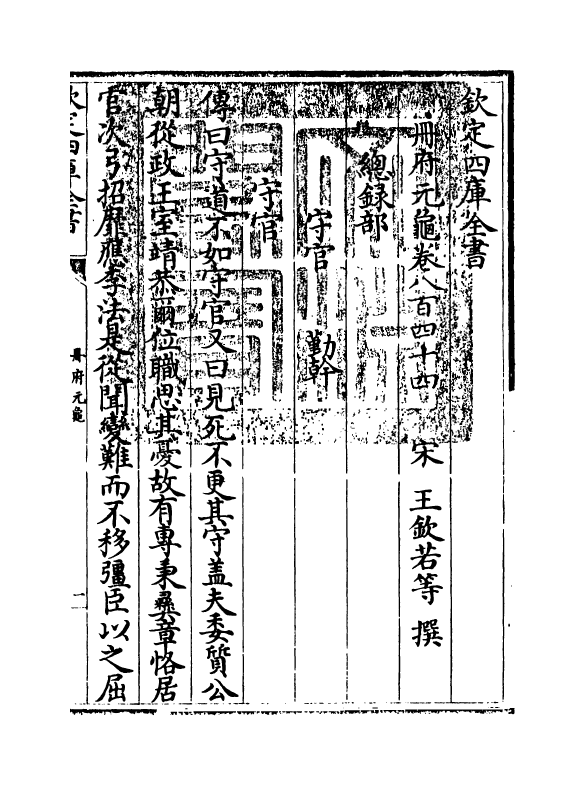 欽定四庫全書
冊府元龜卷八百四十四　宋　王欽若等　撰
總録部
守官　勤幹
守官
傳曰守道不如守官又曰見死不更其守蓋夫委質公
朝從政王室靖恭爾位職思其憂故有專秉彞章恪居
官次弓招靡應李法是從聞變難而不移彊臣以之屈
欽定四庫全書
冊府元龜
二